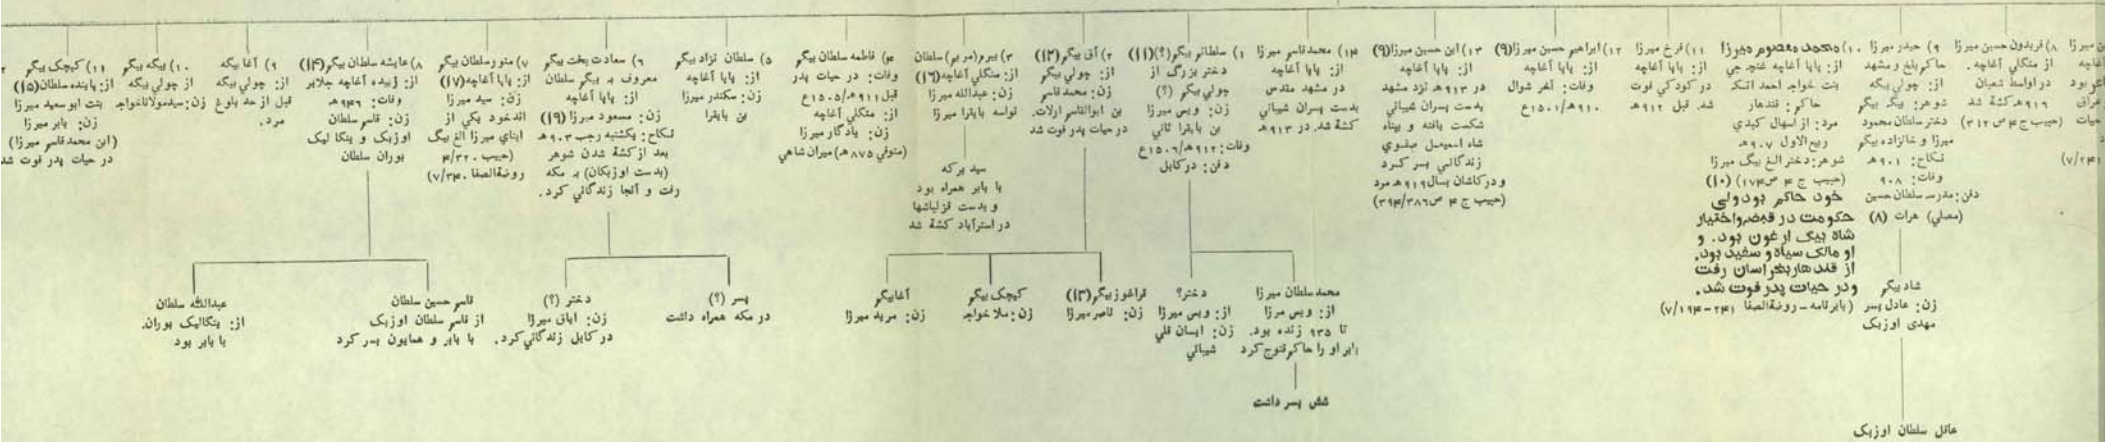 ۸) فریدون حسین میرزا
از منگلی آغاچه.
در اواسط شعبان
۹۱۶ه کشته شد
(حبیب ج ۴ ص ۳۱۲)
۹) حیدر میرزا
حاکم بلخ و مشهد
از: چولی بیگه
شوهر: بیگه بیگم
دختر سلطان محمود
میرزا و خانزاده بیگم
نکاح: ۹۰۱ه
وفات: ۹۰۸
دفن: مدرسه سلطان حسین
(مصلی) هرات (۸)
شاد بیگم
زن: عادل پسر
مهدی اوزبک
عاقل سلطان اوزبک
۱۰) محمد معصوم میرزا
از: پاپا آغاچه غنچه جی
بنت خواجه احمد اتکه
حاکم: قندهار
مرد: از اسهال کبدی
ربیع الاول ۹۰۷ه
شوهر: دختر الغ بیگ میرزا
(حبیب ج ۴ ص ۱۷۴) (۱۰)
خود حاکم بود ولی
حکومت در قبضه و اختیار
شاه بیگ ارغون بود. و
او مالک سیاه و سفید بود.
از قندهار بخراسان رفت
و در حیات پدر فوت شد.
(بابرنامه - روضةالصفا ۲۴۱-۷/۱۹۴)
۱۱) فرخ میرزا
از: پاپا آغاچه
در کودکی فوت
شد. قبل ۹۱۲ه
۱۲) ابراهیم حسین میرزا (۹)
از: پاپا آغاچه
وفات: آخر شوال
۹۱۰ه/۱۵۰۱ع
۱۳) ابن حسین میرزا (۹)
از: پاپا آغاچه
در ۹۱۳ه نزد مشهد
بدست پسران شیبانی
شکست یافته و پناه
شاه اسمیعل صفوی
زندگانی بسر کرد
و در کاشان بسال ۹۱۹ه مرد
(حبیب ج ۴ ص ۳۹۴/۳۸۶)
۱۴) محمد قاسم میرزا
از: پاپا آغاچه
در مشهد مقدس
بدست پسران شیبانی
کشته شد. در ۹۱۳ه
۱) سلطانم بیگم (؟) (۱۱)
دختر بزرگ از
چولی بیگم (؟)
زن: ویس میرزا
بن بایقرا ثانی
وفات: ۹۱۲ه/۱۵۰۶ع
دفن: در کابل
محمد سلطان میرزا
از: ویس مرزا
تا ۹۳۵ زنده بود.
بابر او را حاکم قنوج کرد
شش پسر داشت
دختر؟
از: ویس میرزا
زن: ایسان قلی
شیبانی
۲) آق بیگم (۱۲)
از: چولی بیگم
زن: محمد قاسم
بن ابوالقاسم ارلات.
در حیات پدر فوت شد
قراغوز بیگم (۱۳)
زن: ناصر میرزا
کیچک بیگم
زن: ملا خواجه
آغا بیگم
زن: مرید میرزا
۳) بیرم (مریم) سلطان
از: منگلی آغاچه (۱۶)
زن: عبدالله میرزا
نواسه بایقرا میرزا
سید برکه
با بابر همراه بود
و بدست قزلباشها
در استرآباد کشته شد
۴) فاطمه سلطان بیگم
وفات: در حیات پدر
قبل ۹۱۱ه/۱۵۰۵ع
از: منگلی آغاچه
زن: یادگار میرزا
(متوفی ۸۷۵ه) میران شاهی
۵) سلطان نژاد بیگم
از: پاپا آغاچه
زن: سکندر میرزا
بن بایقرا
۶) سعادت بخت بیگم
معروف به بیگم سلطان
از: پاپا آغاچه
زن: مسعود میرزا (۱۹)
نکاح: یکشنبه رجب ۹۰۳ه
بعد از کشته شدن شوهر
(بدست اوزبکان) به مکه
رفت و آنجا زندگانی کرد.
پسر (؟)
در مکه همراه داشت
دختر (؟)
زن: ایاق میرزا
در کابل زندگانی کرد.
۷) منور سلطان بیگم
از: پاپا آغاچه (۱۷)
زن: سید میرزا
اندخود یکی از
ابنای میرزا الغ بیگ
(حبیب ۴/۳۲۰
روضةالصفا ۷/۳۴۰)
۸) عایشه سلطان بیگم (۱۴)
از: زبیده آغاچه جلایر
وفات: ۹۴۶ه
زن: قاسم سلطان
اوزبک و ینکا لیک
بوران سلطان
قاسم حسین سلطان
از قاسم سلطان اوزبک
با بابر و همایون بسر کرد
عبدالله سلطان
از: ینکالیک بوران.
با بابر بود
۹) آغا بیگه
از: چولی بیگه
قبل از حد بلوغ
مرد.
۱۰) بیگه بیگم
از چولی بیگه
زن: سید مولانا خواجه
۱۱) کیچک بیگم
از: پاینده سلطان (۱۵)
بنت ابو سعید میرزا
زن: بابر میرزا
(ابن محمد قاسم میرزا)
در حیات پدر فوت شد